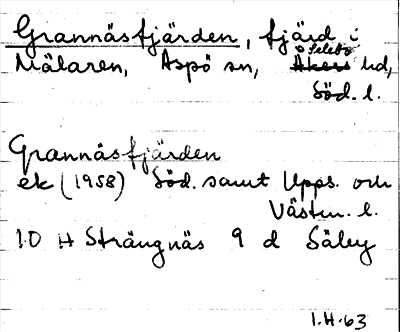 Grannäsfjärden, fjärd i
Mälaren, Aspö sn, Selebo hd,
Söd. l.
Grannäsfjärden
ek (1958) Söd. samt Upps. och
Västm. l.
10 H Strängnäs 9 d Säby
I.H.63